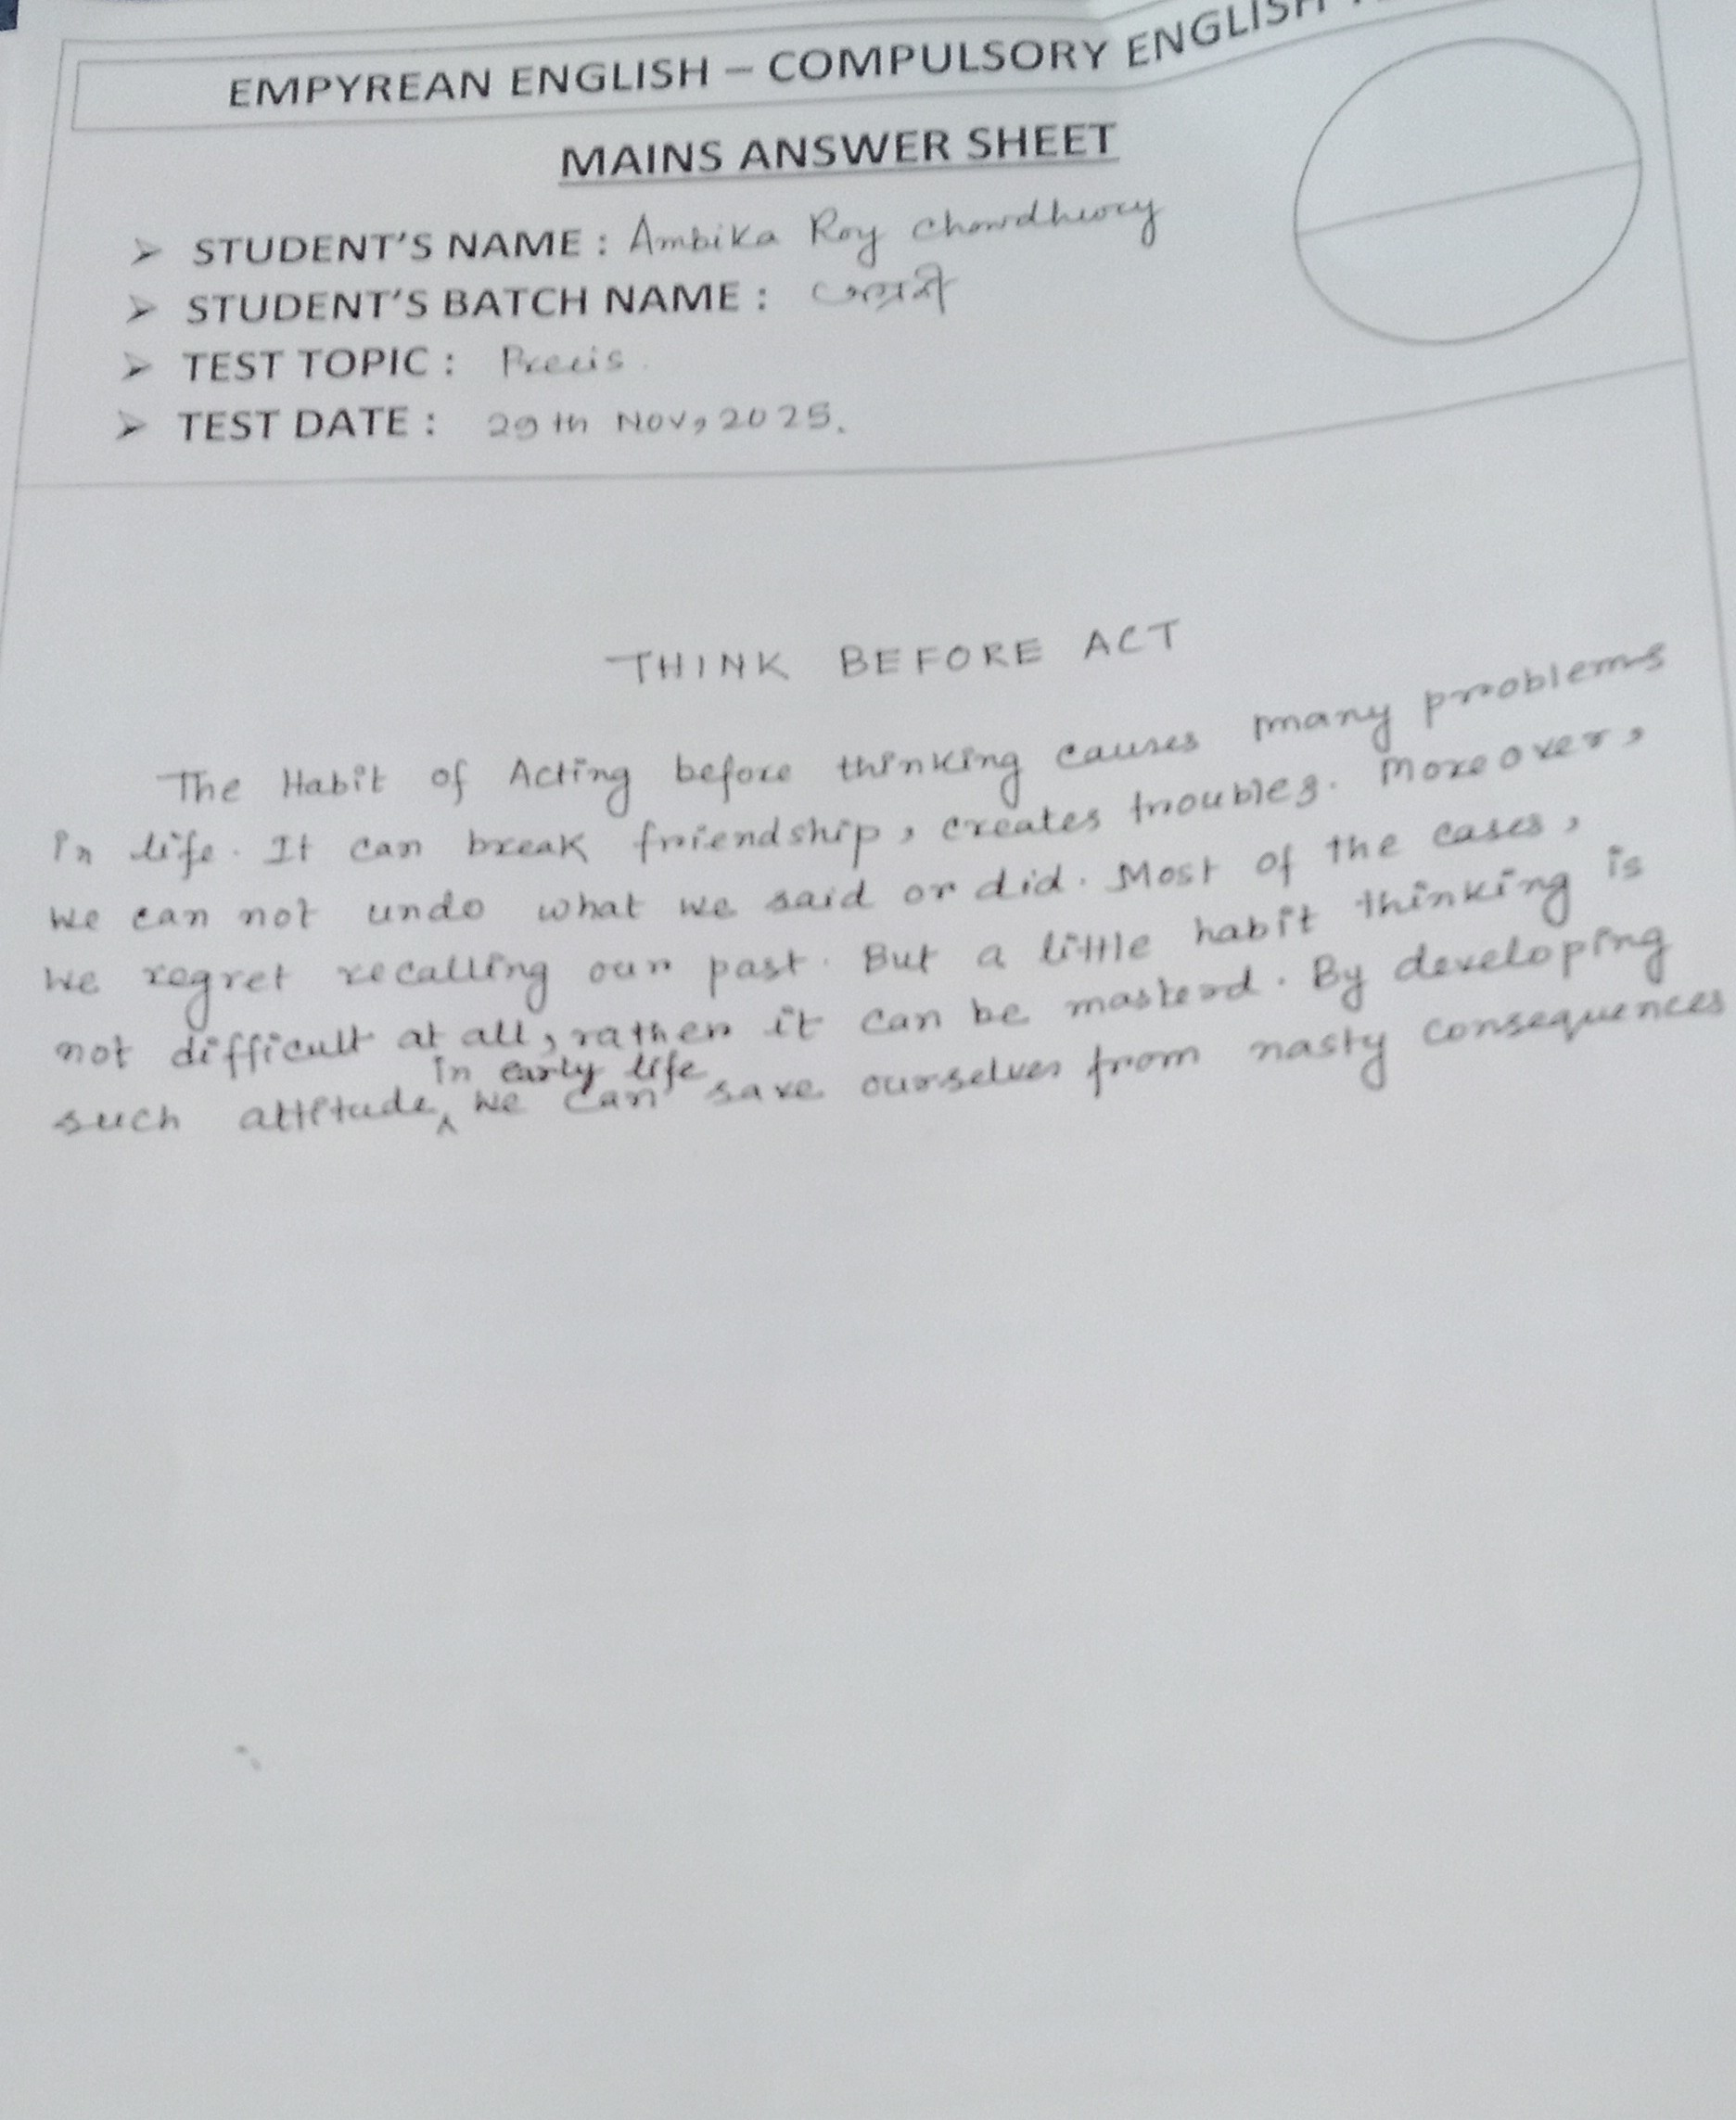 EMPYREAN ENGLISH – COMPULSORY ENGLISH
MAINS ANSWER SHEET
➤ STUDENT'S NAME : Ambika Roy Chowdhury
➤ STUDENT'S BATCH NAME :
➤ TEST TOPIC : Precis.
➤ TEST DATE : 29th Nov, 2025.
THINK BEFORE ACT
The Habit of Acting before thinking causes many problems
in life. It can break friendship, creates troubles. Moreover,
we can not undo what we said or did. Most of the cases,
we regret recalling our past. But a little habit thinking is
not difficult at all, rather it can be masterd. By developing
in early life
such attitude, we can save ourselves from nasty consequences